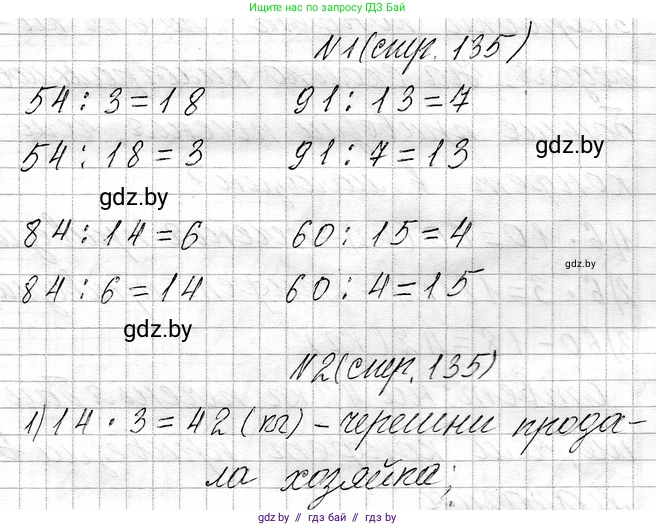 Найдите по запросу ГДЗ Бай
N1(стр. 135)
54 : 3 = 18   91 : 13 = 7
54 : 18 = 3   91 : 7 = 13
gdz.by
gdz.by
84 : 14 = 6   60 : 15 = 4
gdz.by
84 : 6 = 14   60 : 4 = 15
gdz.by
N2(стр. 135)
1) 14 · 3 = 42 (кг) – черешни прода-
ла хозяйка;
gdz.by // гдз бай // гдз.бай